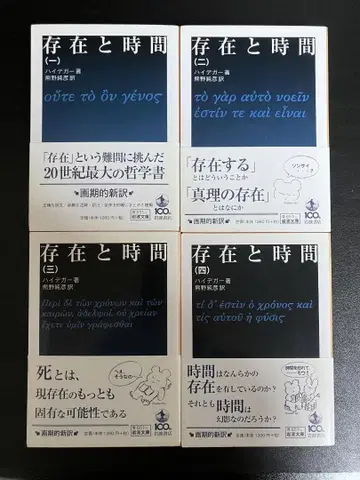 存在と時間
(一)
ハイデガー著
熊野純彦訳
οὔτε τὸ ὂν γένος
「存在」という難問に挑んだ
20世紀最大の哲学書
画期的新訳
100
岩波文庫
存在と時間
(二)
ハイデガー著
熊野純彦訳
τὸ γὰρ αὐτὸ νοεῖν
ἐστίν τε καὶ εἶναι
「存在する」
とはどういうことか
「真理の存在」
とはなにか
ソンザイ?
画期的新訳
100
岩波文庫
存在と時間
(三)
ハイデガー著
熊野純彦訳
Περὶ δὲ τῶν χρόνων καὶ τῶν
καιρῶν, ἀδελφοί, οὐ χρείαν
ἔχετε ὑμῖν γράφεσθαι
死とは、
現存在のもっとも
固有な可能性である
画期的新訳
100
岩波文庫
存在と時間
(四)
ハイデガー著
熊野純彦訳
τί δ᾽ ἐστὶν ὁ χρόνος καὶ
τίς αὐτοῦ ἡ φύσις
時間はなんらかの
存在を有しているのか?
それとも時間は
幻影なのだろうか?
画期的新訳
100
岩波文庫